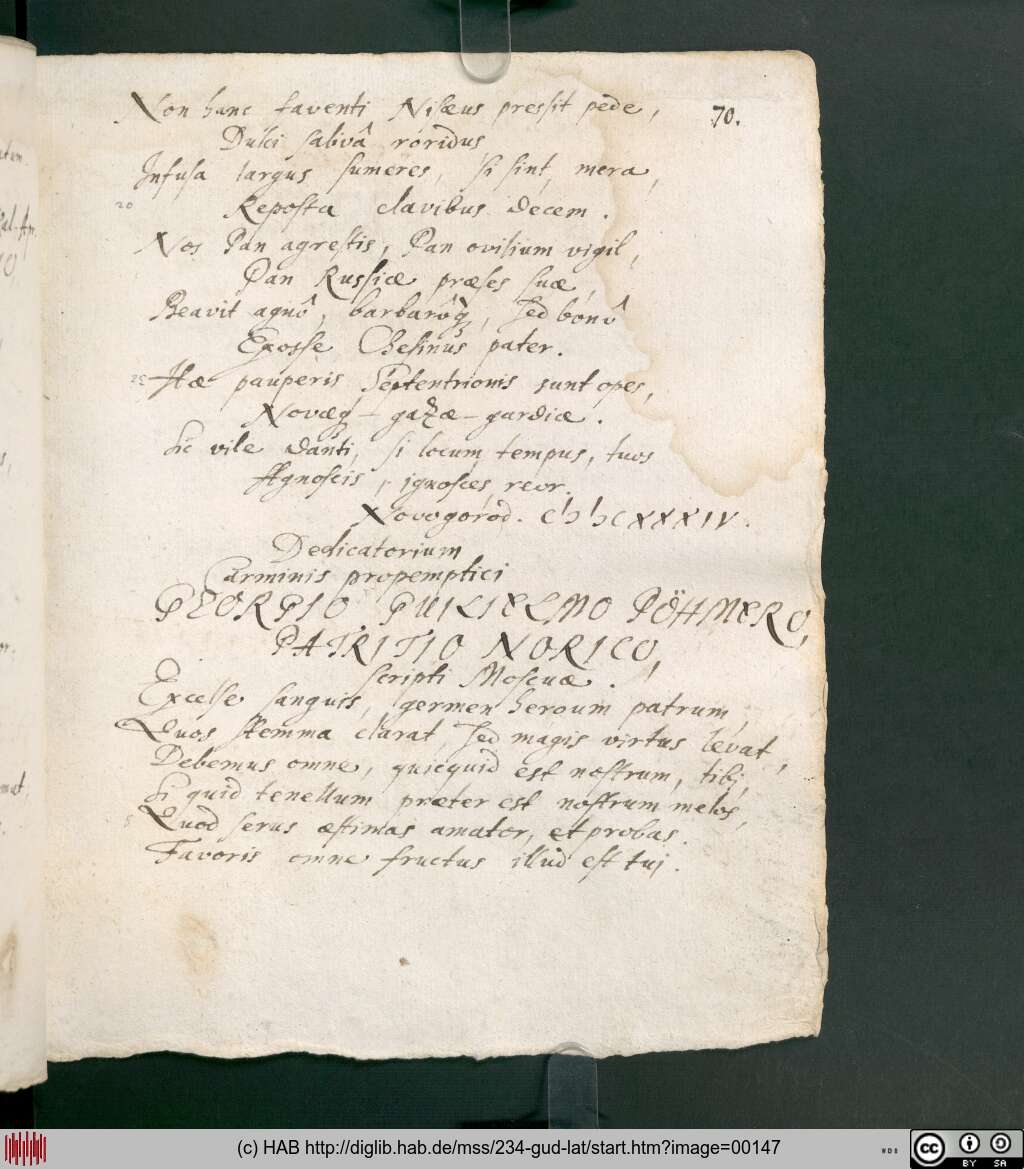 70.
Non hanc faventi Nisæus pressit pede,
Dulci salivâ roridus,
Infusa largus sumeres, si sint, mera,
20
Reposta clavibus decem.
Nos Pan agrestis, Pan ovilium vigil,
Pan Russiæ præses suæ,
Beavit agnô, barbarôq, sed bonô
Exosse Chesinus pater.
25 Hæ pauperis Septentrionis sunt opes,
Novæq - gazæ - gardiæ.
Sic vile danti, si locum, tempus, tuos
Agnoscis, ignosces, reor.
Novogorod. CIƆ IƆCXXXIV.
Dedicatorium
Carminis propemptici
GEORGIO GUILIELMO PÖHMERO,
PATRITIO NORICO,
scripti Moscuæ.
Excelse sanguis, germen heroum patrum,
Quos stemma clarat, sed magis virtus levat,
Debemus omne, quicquid est nostrum, tibj,
Si quid tenellum præter est nostrum melos,
5 Quod serus æstimas amator, et probas.
Favoris omne fructus illud est tuj.
(c) HAB http://diglib.hab.de/mss/234-gud-lat/start.htm?image=00147
cc BY SA